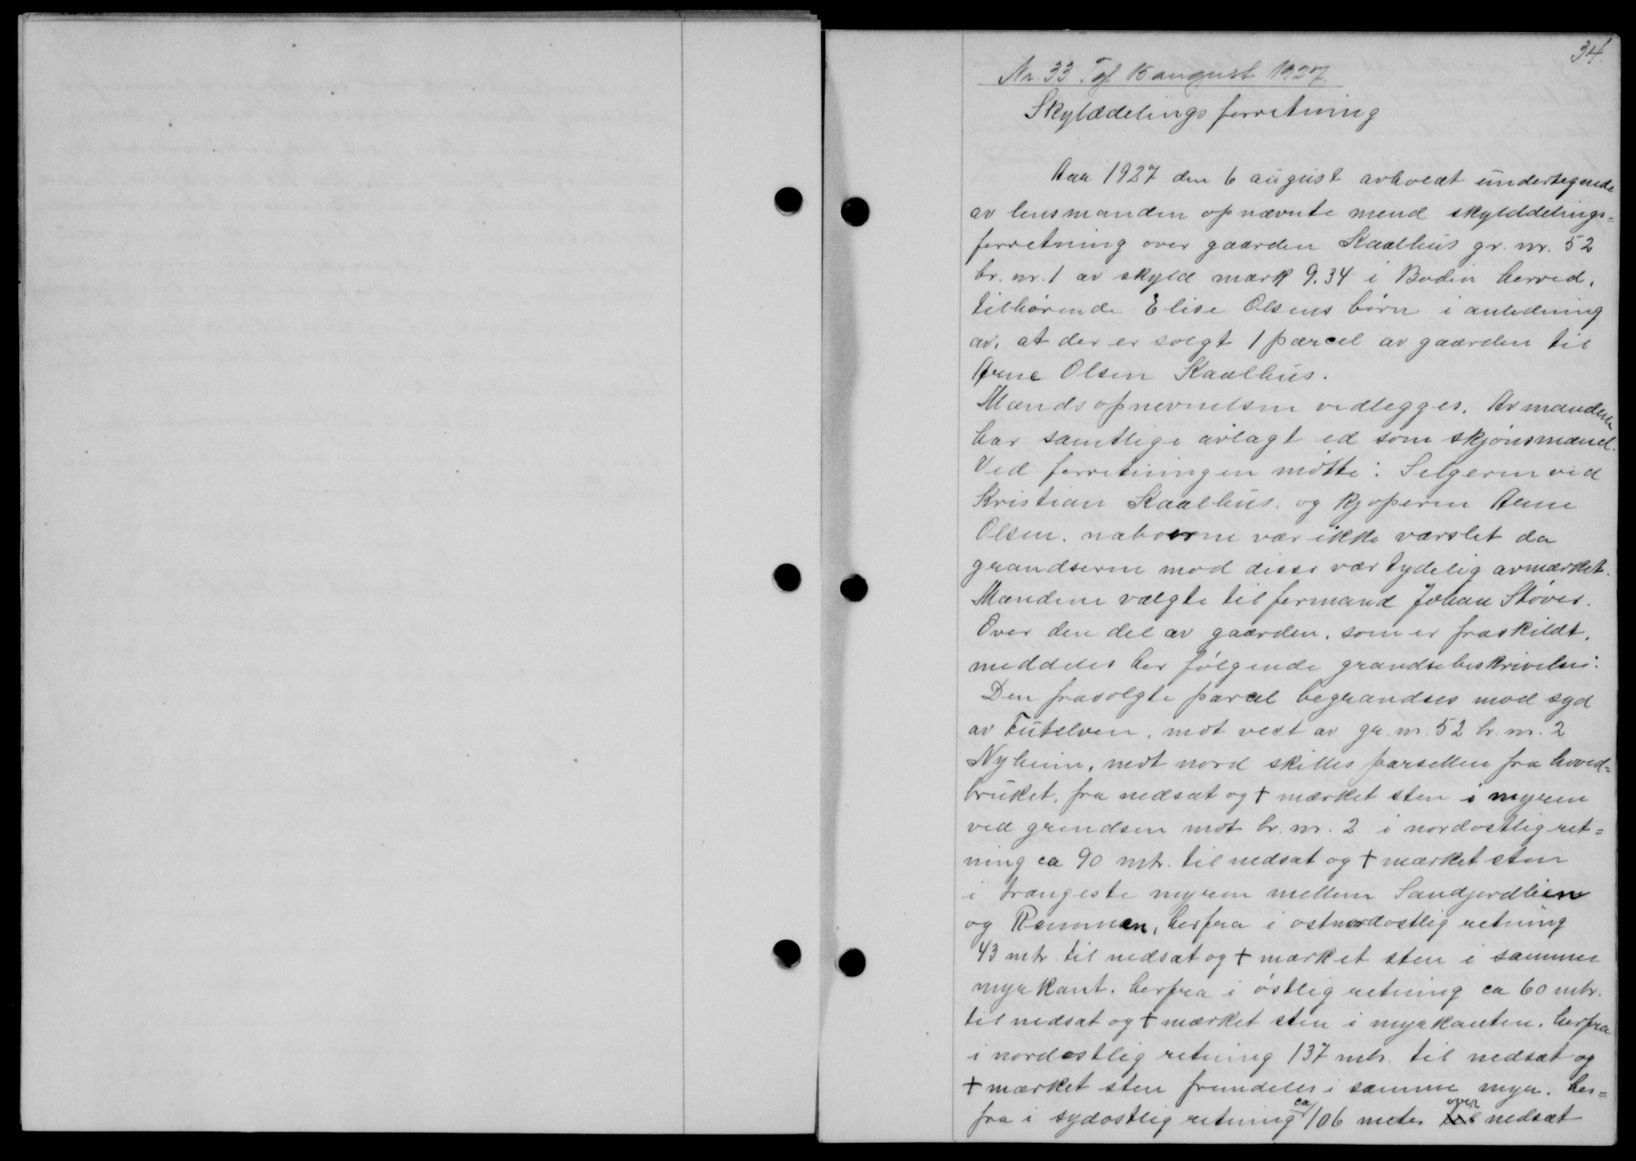 34.
Nr. 33. Tgl 15 august 1927.
Skylddelingsforretning
Aar 1927 den 6 august avholdt undertegnede
av lensmanden opnævnte mend skylddelings=
forretning over gaarden Kaalhus gr. nr. 52
br. nr. 1 av skyld mark 9.34 i Bodin herred.
tilhørende Elise Olsens børn i anledning
av, at der er solgt 1 parcel av gaarden til
Arne Olsen Kaalhus.
Mandsopnevnelsen vedlegges. Av mændene
har samtlige avlagt ed som skjønsmænd.
Ved forretningen møtte: Selgeren ved
Kristian Kaalhus. og kjøperen Arne
Olsen. naboerne var ikke varslet da
grandserne mod disse var tydelig avmærket.
Mændene valgte til formand Johan Støver.
Over den del av gaarden, som er fraskildt,
meddeles her følgende grandsebeskrivelse:
Den frasolgte parcel begrandses mod syd
av Futelven, mot vest av gr. nr. 52 br. nr. 2
Nyheim, mot nord skilles parsellen fra hoved=
bruket, fra nedsat og + mærket sten i myren
ved grendsen mot br. nr. 2 i nordostlig ret=
ning ca 90 mtr. til nedsat og + mærket sten
i trangeste myren mellem Sandjordlien
og Remmen, herfra i ostnordostlig retning
43 mtr. til nedsat og + mærket sten i samme
myrkant. herfra i østlig retning ca 60 mtr.
til nedsat og + mærket sten i myrkanten. herfra
i nordostlig retning 137 mtr. til nedsat og
+ mærket sten fremdeles i samme myr. her=
fra i sydostlig retning ca 106 meter over nedsat